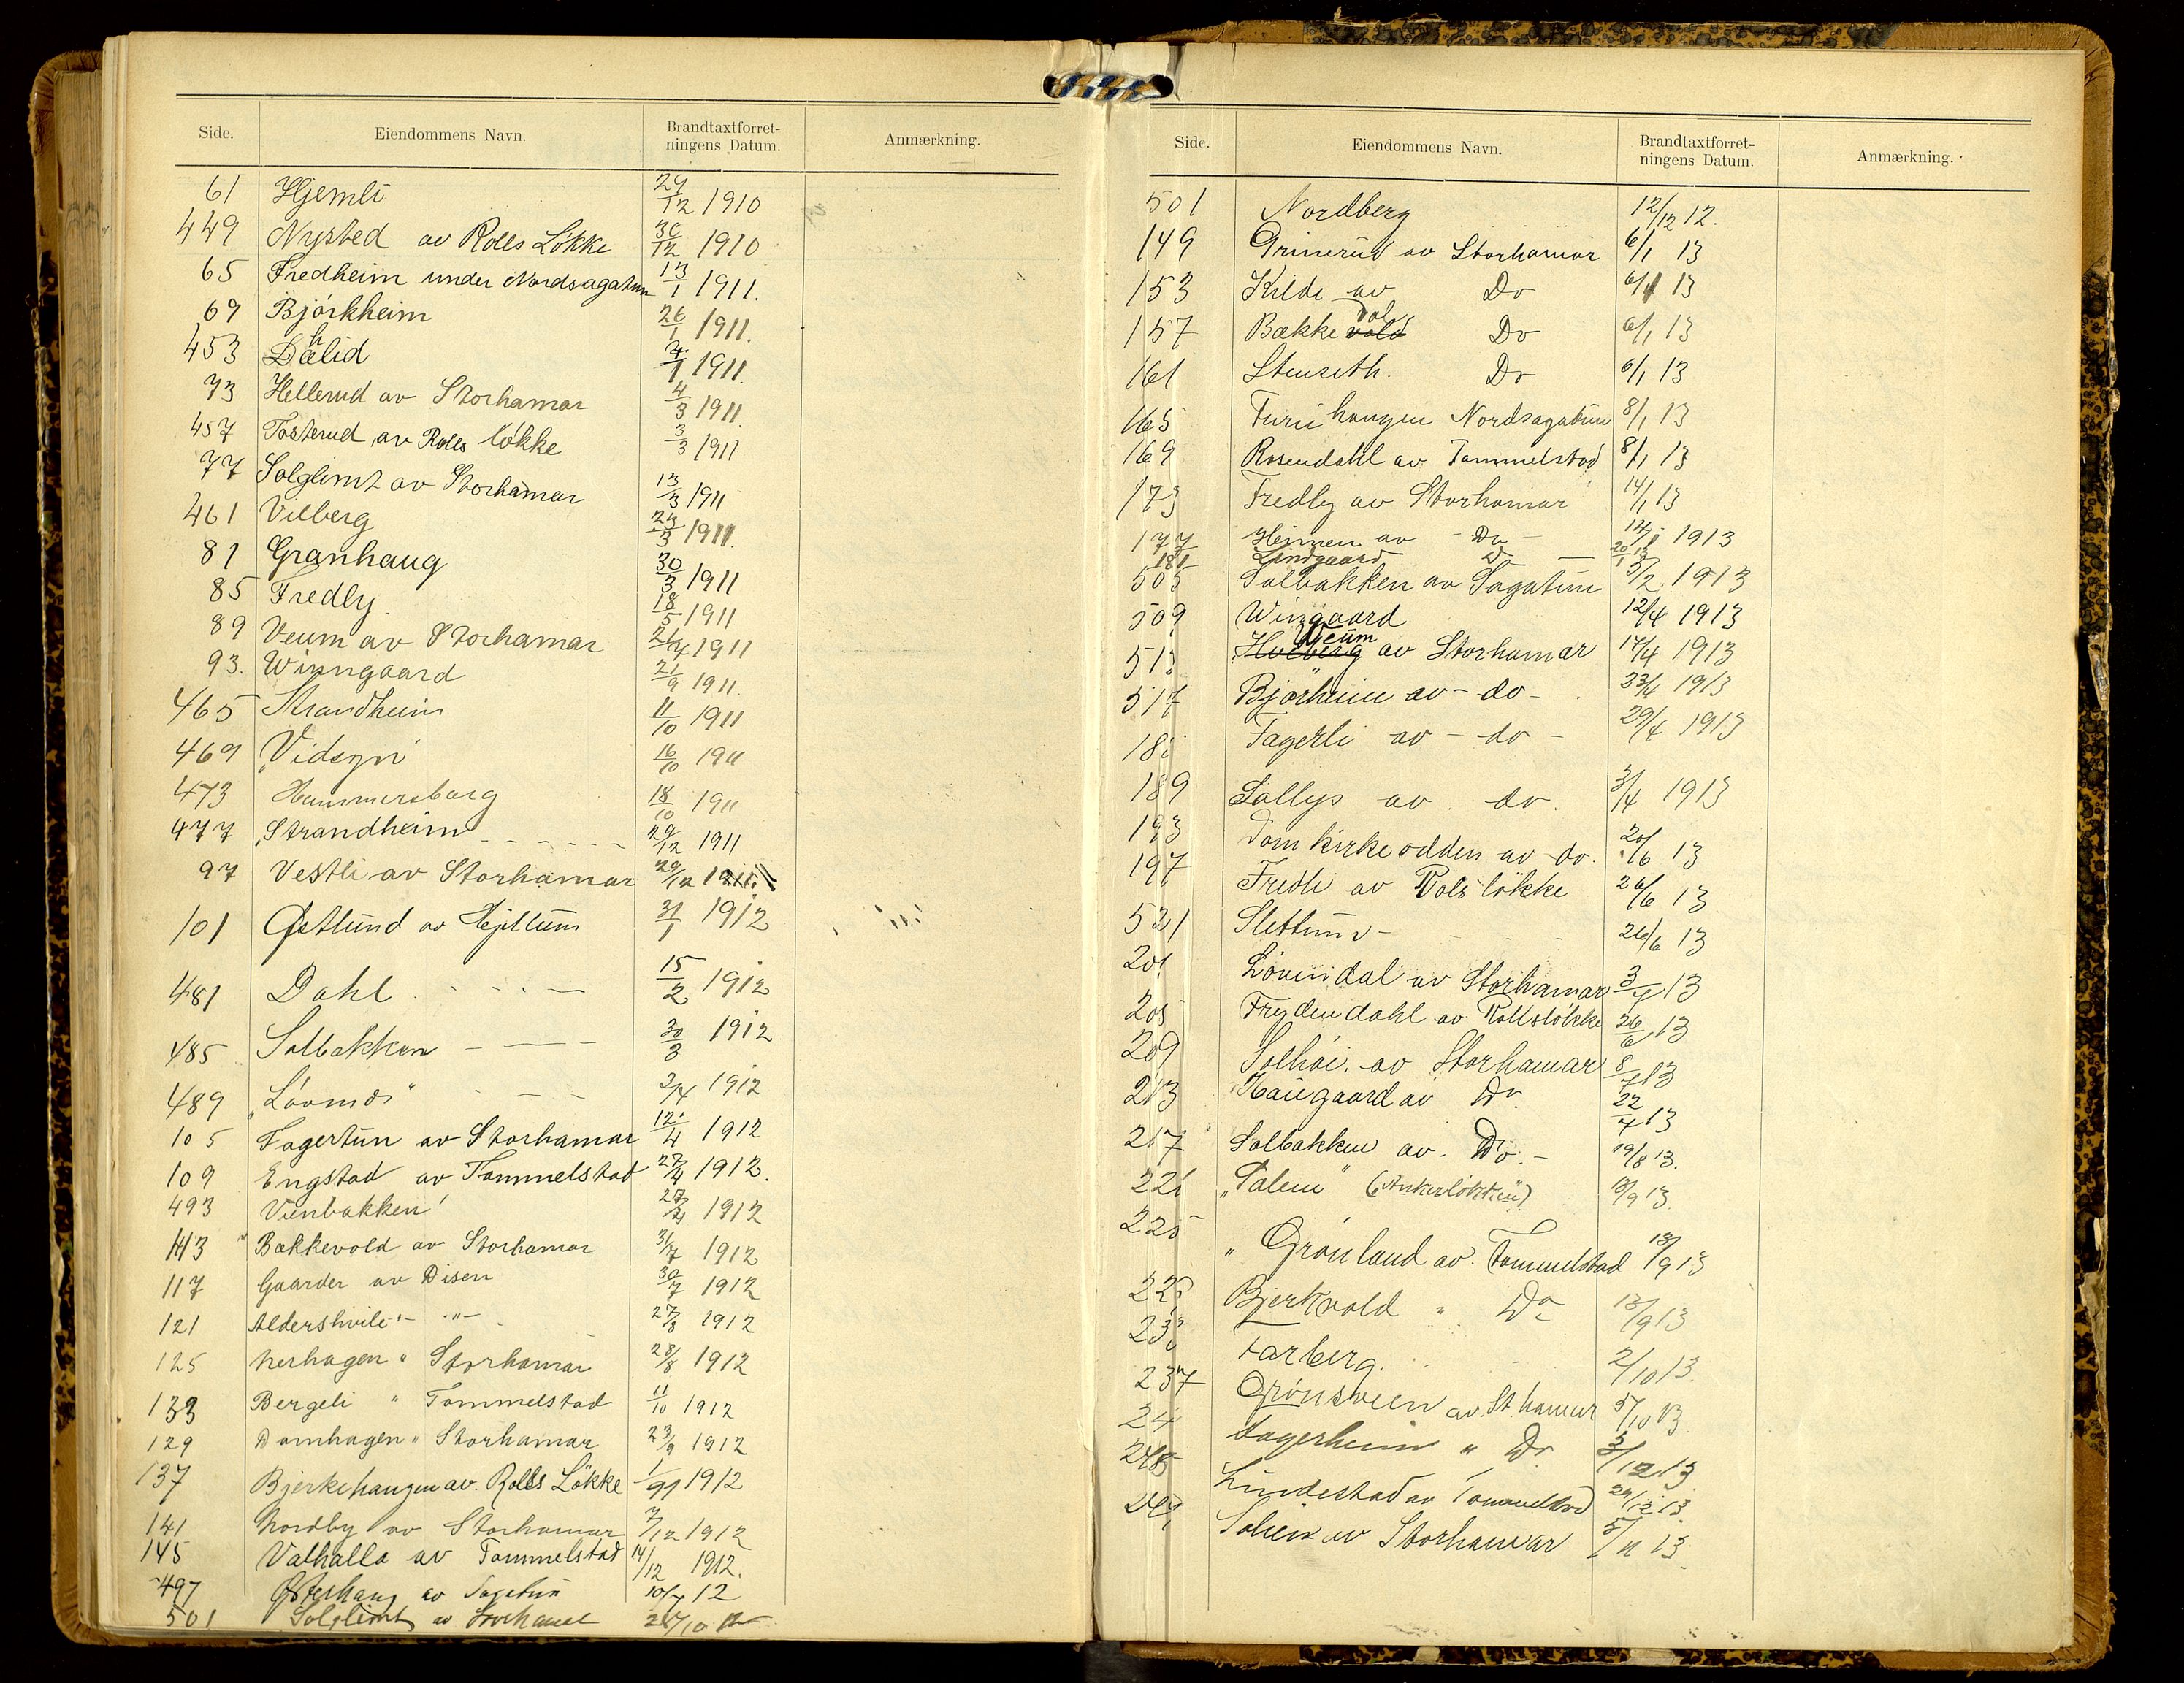 Side. Eiendommens Navn. Brandtaxtforret-ningens Datum. Anmærkning.
61 Hjemli 24/12 1910
449 Nysted av Rolls Løkke 30/12 1910
65 Fredheim under Nordsagatun 13/1 1911.
69 Bjørkheim 26/1 1911.
453 Dahlid 1911.
73 Hellerud av Storhamar 4/3 1911.
457 Tosterud av Rolls løkke 3/3 1911
77 Solglimt av Storhamar 13/3 1911
461 Vilberg 24/3 1911.
81 Granhaug 30/3 1911
85 Fredly. 18/5 1911
89 Veum av Storhamar 21/4 1911
93. Winngaard 21/9 1911.
465 Strandheim 11/10 1911
469 "Vidsyn" 16/10 1911
473 Hammersborg 18/10 1911
477 Strandheim 29/12 1911
97 Vestli av Storhamar 29/12 1911
101 Østlund av Hjellum 31/1 1912
481 Dahl 15/2 1912
485 Solbakken 30/3 1912
489 "Løvmo" 2/4 1912
105 Fagertun av Storhamar 12/4 1912
109 Engstad av Tommelstad 27/4 1912.
493 Vienbakken 27/4 1912
113 Bækkevold av Storhamar 3/7 1912
117 Gaarder av Disen 30/7 1912
121 Aldershvile -"- 27/8 1912
125 Nerhagen " Storhamar 28/8 1912
133 Bergeli " Tommelstad 11/10 1912
129 Domhagen " Storhamar 23/9 1912
137 Bjerkehaugen av. Rolls Løkke 1/9 1912
141 Nordby av Storhamar 7/12 1912
145 Valhalla av Tommelstad 14/12 1912.
497 Østerhaug av Sagatun 10/7 12
501 Solglimt av Storhamar 24/10 12
Side. Eiendommens Navn. Brandtaxtforret-ningens Datum. Anmærkning.
501 Nordberg 12/12 12.
149 Grinerud av Storhamar 6/1 13
153 Kilde av Do 6/1 13
157 Bækkevold dal Do 6/1 13
161 Stenseth. Do 6/1 13
165 Furuhaugen Nordsagatun 8/1 13
169 Rosendahl av Tommelstad 8/1 13
173 Fredly av Storhamar 14/1 13
177 Heimen av - Do - 14/1 1913
181 Lindgaard Do 20/1 13
505 Solbakken av Sagatun 3/2 1913
509 Wingaard 12/4 1913
513 Hvelberg Veum av Storhamar 17/4 1913
517 Bjørheim av - do - 23/4 1913
185 Fagerli av - do - 29/4 1913
189 Sollys av do. 3/4 1913
193 Domkirkeodden av do. 20/6 13
197 Fredli av Rolsløkke 26/6 13
521 Slettun 26/6 13
201 Løvendal av Storhamar 3/7 13
205 Frydendahl av Rollsløkke 26/6 13
209 Solhøi. av Storhamar 8/7 13
213 Haugaard av Do 22/7 13
217 Solbakken av. Do. - 19/8 13.
221 "Salem" (Ankerløkken) 13/9 13.
225 " Grønland av. Tommelstad 13/9 13
229 Bjerkvold " Do 13/9 13
233 Farberg. 2/10 13.
237 Grønsveen av. St.hamar 5/10 13
24 Fagerheim " Do 3/12 13
245 Lindestad av Tommelstad 24/12 13.
249 Solien av Storhamar 5/11 13